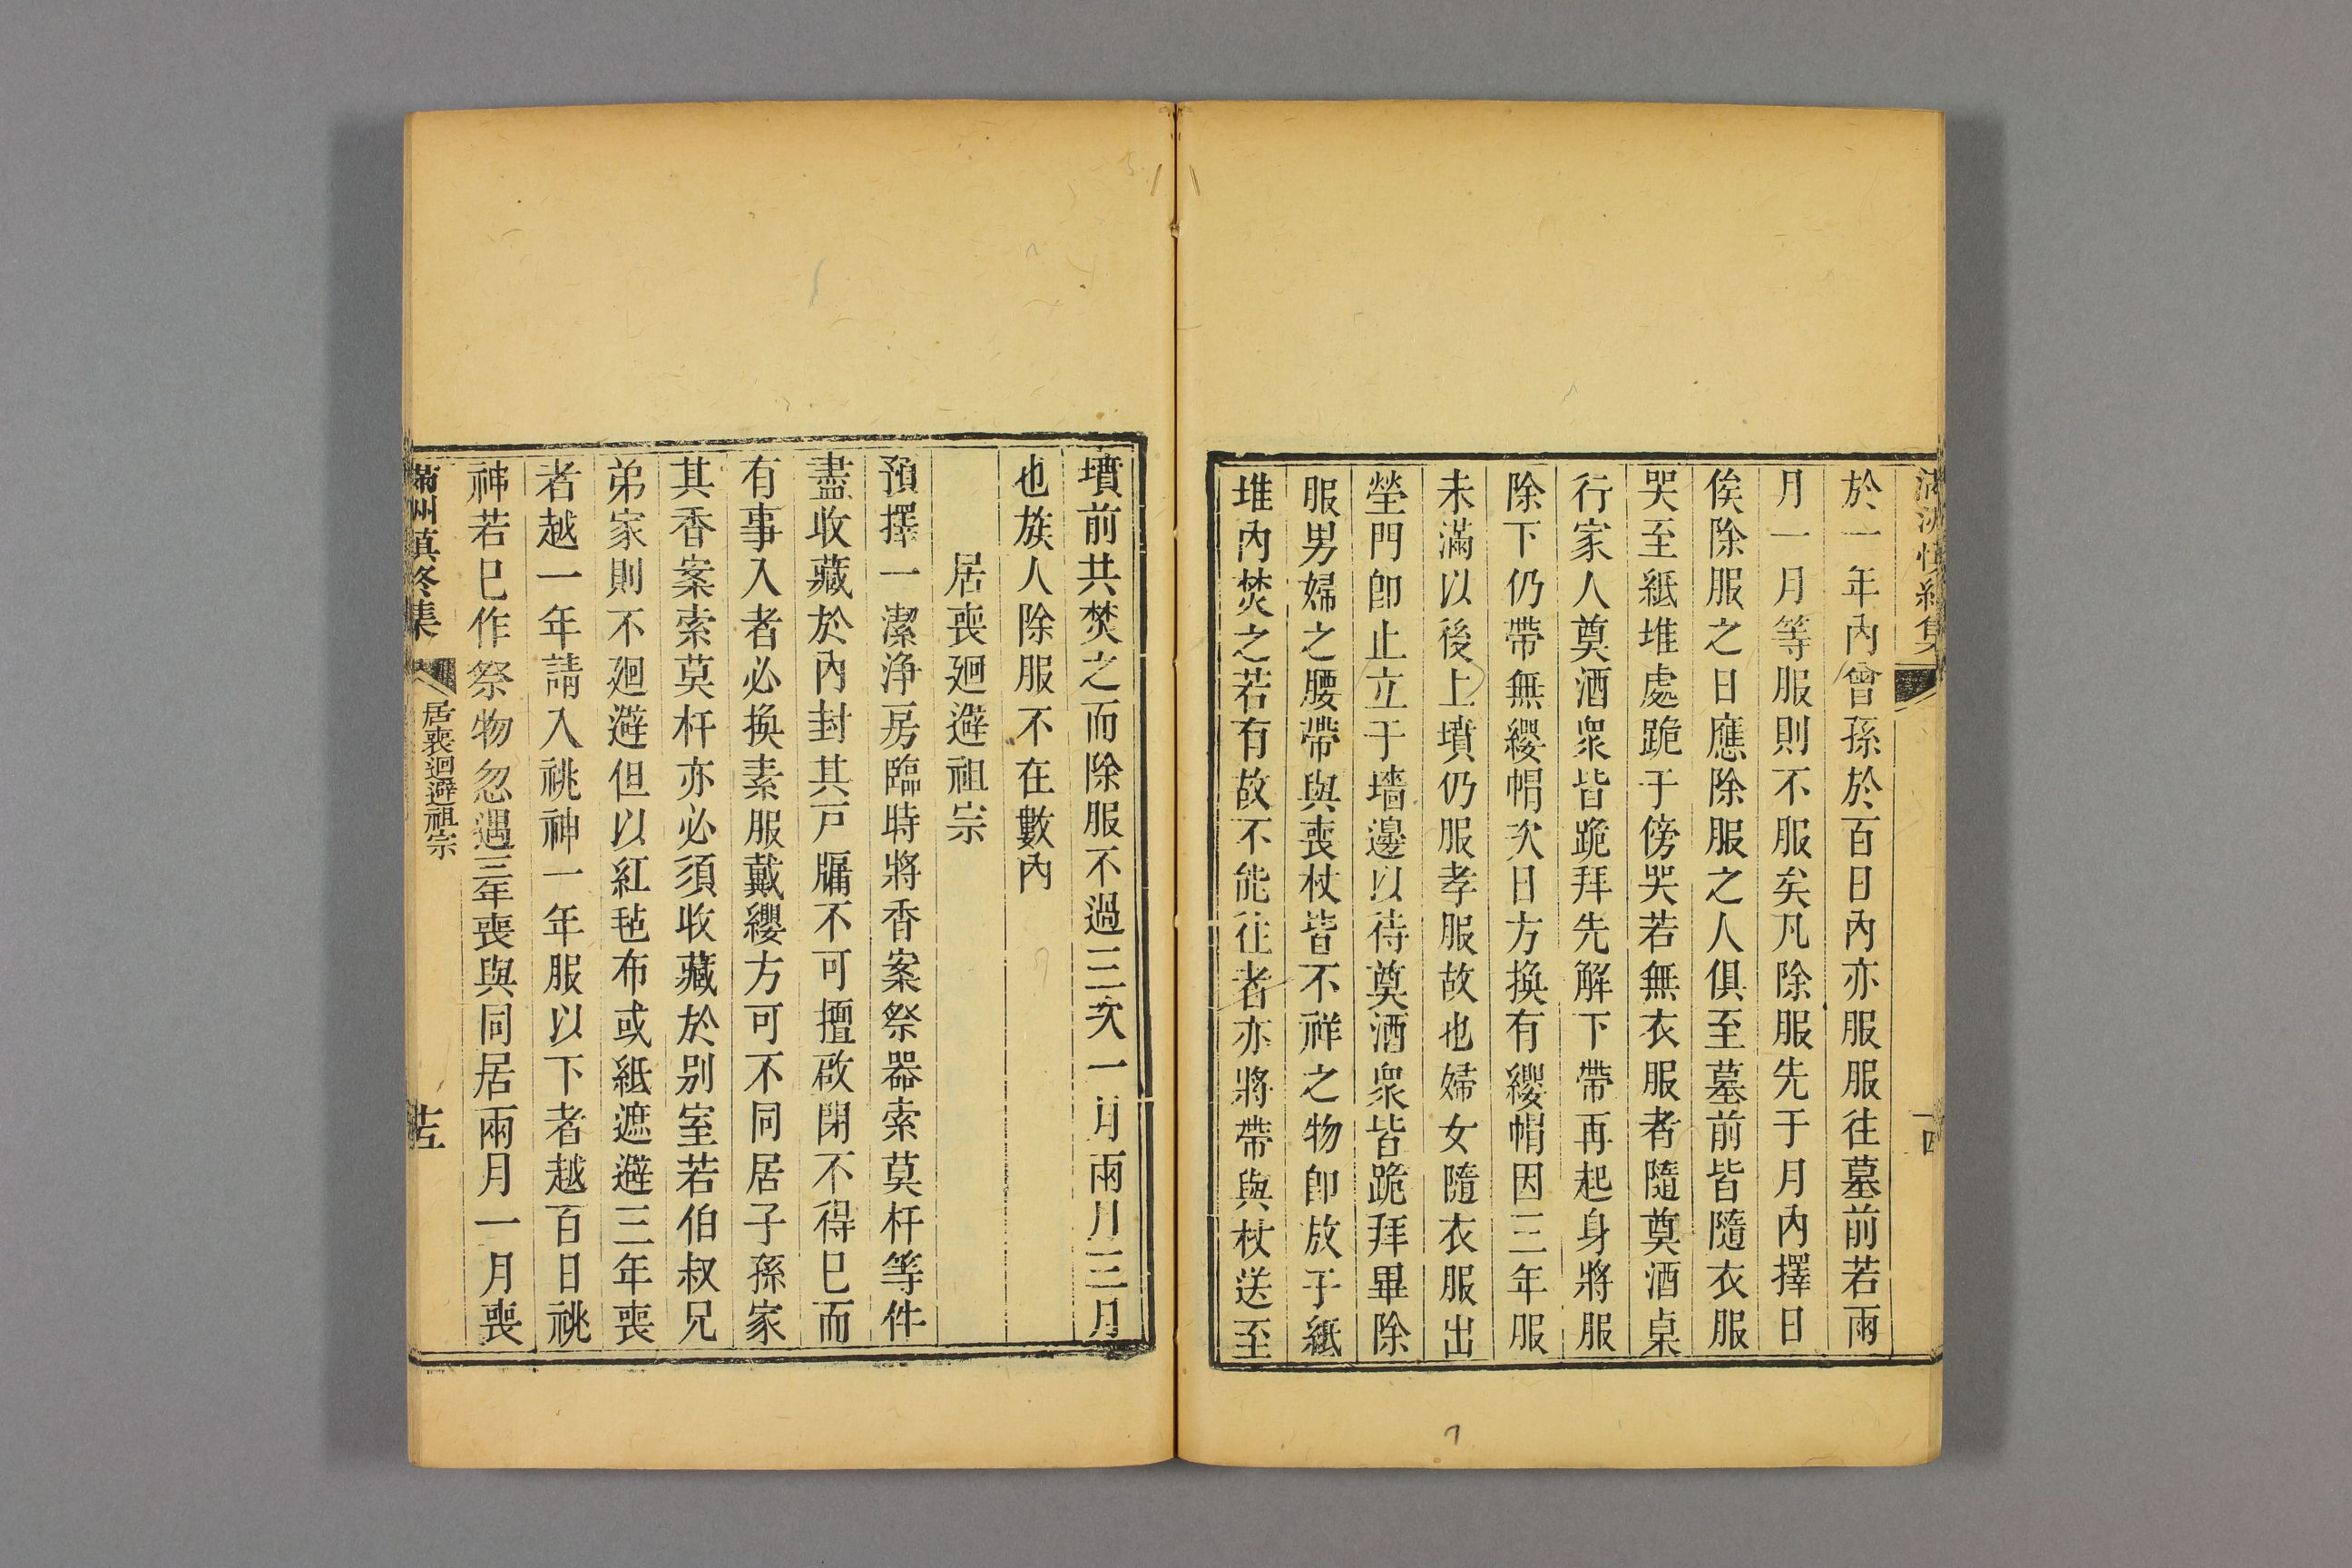 於一年內曾孫於百日內亦服服往墓前若兩
月一月等服則不服矣凡除服先于月內擇日
俟除服之日應除服之人俱至墓前皆隨衣服
哭至紙堆處跪于傍哭若無衣服者隨奠酒桌
行家人奠酒衆皆跪拜先解下帶再起身將服
除下仍帶無纓帽次日方換有纓帽因三年服
未滿以後上墳仍服孝服故也婦女隨衣服出
塋門卽止立于墻邊以待奠酒衆皆跪拜畢除
服男婦之腰帶與喪杖皆不祥之物卽放于紙
堆內焚之若有故不能往者亦將帶與杖送至
墳前共焚之而除服不過三次一月兩月三月
也族人除服不在數內
居喪廻避祖宗
預擇一潔浄房臨時將香案祭器索莫杆等件
盡收藏於內封其戸牖不可擅啟閉不得巳而
有事入者必換素服戴纓方可不同居子孫家
其香案索莫杆亦必須收藏於别室若伯叔兄
弟家則不廻避但以紅毡布或紙遮避三年喪
者越一年請入祧神一年服以下者越百日祧
神若巳作祭物忽遇三年喪與同居兩月一月喪
滿州慎終集
居喪迴避祖宗